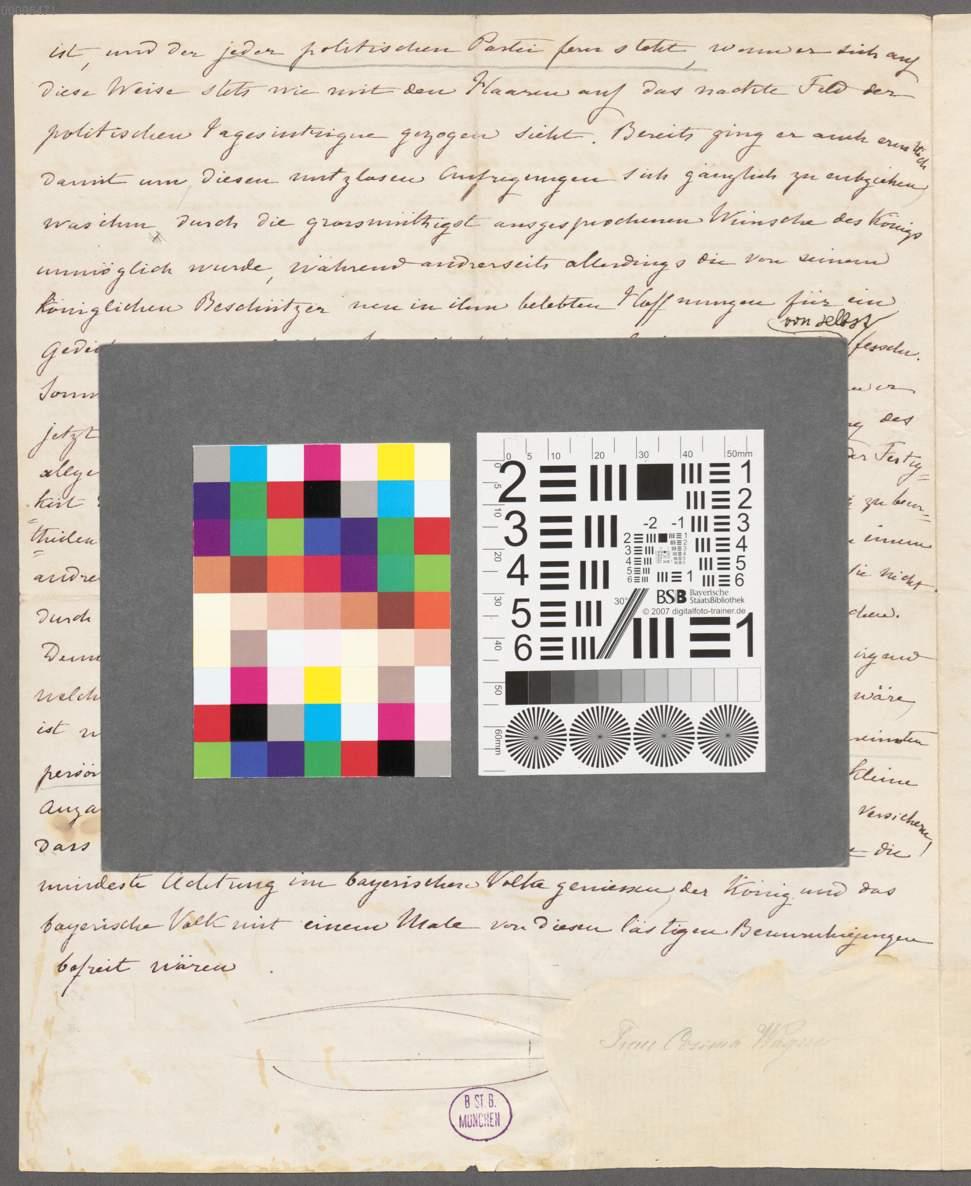 00006471
ist, und der jeder politischen Partei fern steht, wenn er sich auf
diese Weise stets wie mit den Haaren auf das nackte Feld der
politischen Tagesintrigue gezogen sieht. Bereits ging er auch ernstlich
damit um diesen nutzlosen Aufregungen sich gänzlich zu entziehen,
was ihm durch die grossmüthigst ausgesprochenen Wünsche des Königs
unmöglich wurde, während andrerseits allerdings die von seinem
königlichen Beschützer neu in ihm belebten Hoffnungen für ein
von selbst
fesseln.
er
jetzt des
der Fertig-
keit zu beur-
theilen einem
andre die nicht
durch
irgend
welch wäre,
ist
persön kleine
versichern,
Dass die
mindeste Achtung im bayerischen Volke geniessen, der König und das
bayerische Volk mit einem Male von diesen lästigen Beunruhigungen
befreit wären.
Frau Cosima Wagner
B. ST. B.
MÜNCHEN
0 5 10 20 30 40 50mm
0 5 10 20 30 40 50 60mm
2 3 4 5 6
1 2 3 4 5 6
-2 -1
2 3 4 5 6
1
30°
BSB Bayerische
StaatsBibliothek
© 2007 digitalfoto-trainer.de
1